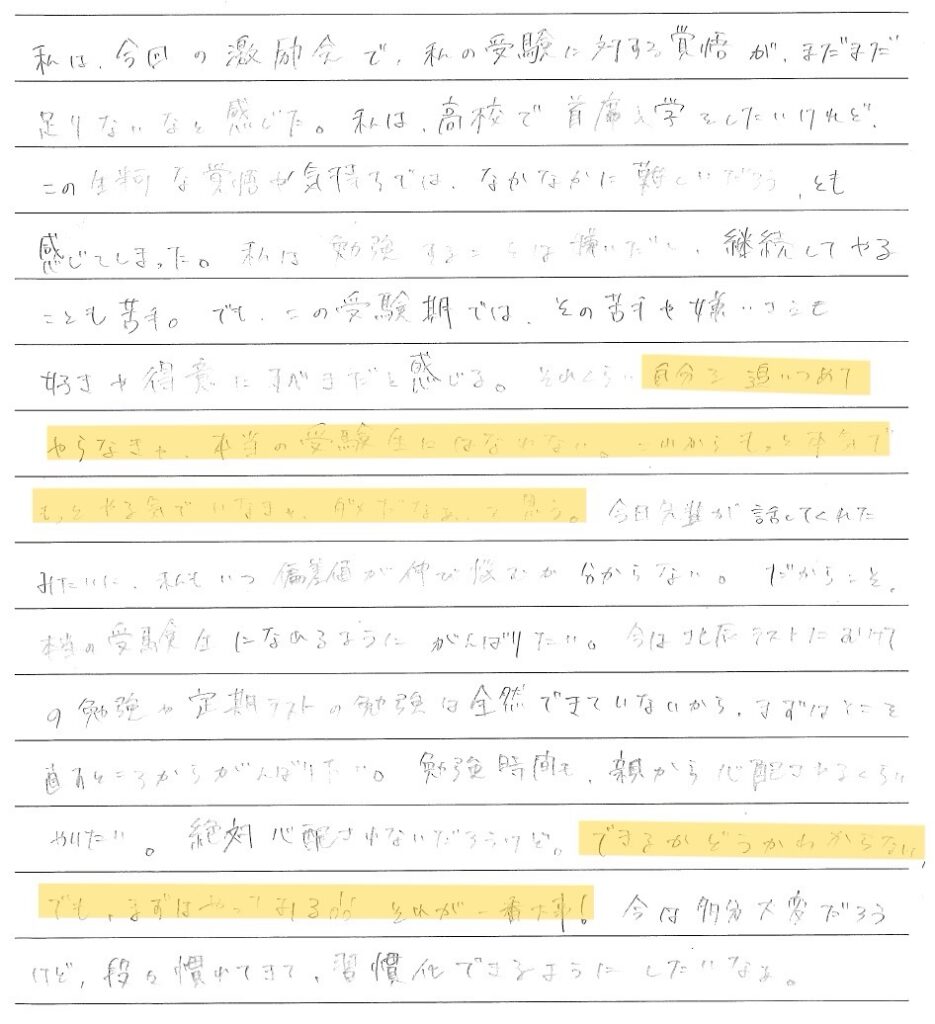 私は、今回の激励会で、私の受験に対する覚悟が、まだまだ
足りないなと感じた。私は、高校で首席入学をしたいけれど、
この生半可な覚悟や気持ちでは、なかなかに難しいだろう、とも
感じてしまった。私は勉強することは嫌いだし、継続してやる
ことも苦手。でも、この受験期では、その苦手や嫌いさえも
好きや得意にすべきだと感じる。それくらい自分を追いつめて
やらなきゃ、本当の受験生にはなれない。これからもっと本気で
もっとやる気でいなきゃ、ダメだなぁ、と思う。今日先輩が話してくれた
みたいに、私もいつ偏差値が伸び悩むか分からない。だからこそ、
本当の受験生になめるようにがんばりたい。今は北辰テストにむけて
の勉強や定期テストの勉強は全然できていないから、まずはそこを
直すところからがんばりたい。勉強時間も、親から心配されるくらい
やりたい。絶対心配されないだろうけど。できるかどうかわからない、
でも、まずはやってみる!! それが一番大事!今は多分大変だろう
けど、段々慣れてきて、習慣化できるようにしたいなぁ。